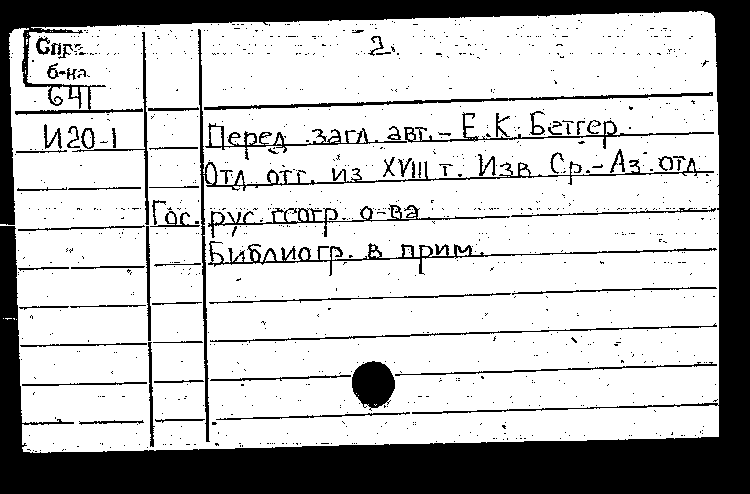 2.
Спра
б-на
641
И20-1
Перед загл. авт.- Е.К. Бетгер.
Отд. отт. из XVIII т. Изв. Ср.-Аз. отд.
Гос. рус. геогр. о-ва
Библиогр. в прим.